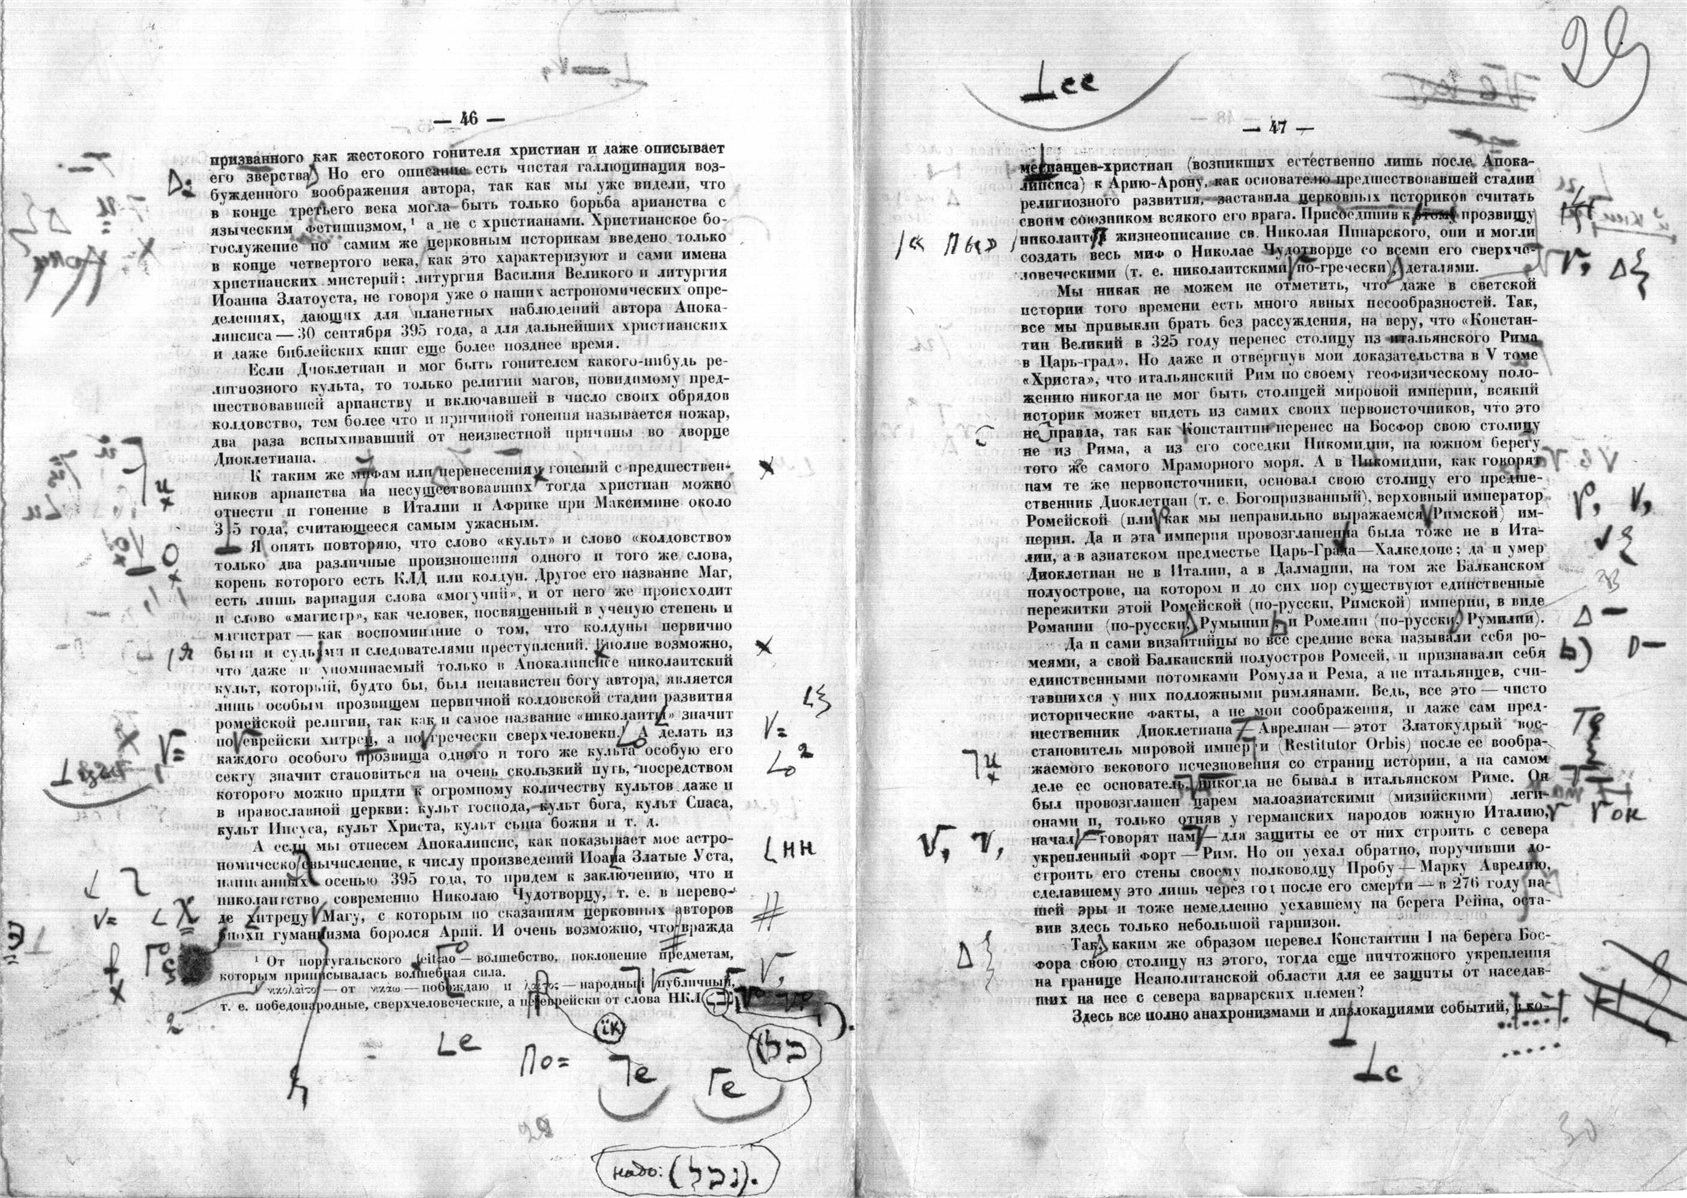 — 46 —
призванного как жестокого гонителя христиан и даже описывает
его зверства. Но его описание есть чистая галлюцинация воз-
бужденного воображения автора, так как мы уже видели, что
в конце третьего века могла быть только борьба арианства с
языческим фетишизмом,¹ а не с христианами. Христианское бо-
гослужение по самим же церковным историкам введено только
в конце четвертого века, как это характеризуют и сами имена
христианских мистерий: литургия Василия Великого и литургия
Иоанна Златоуста, не говоря уже о наших астрономических опре-
делениях, дающих для планетных наблюдений автора Апока-
липсиса — 30 сентября 395 года, а для дальнейших христианских
и даже библейских книг еще более позднее время.
Если Диоклетиан и мог быть гонителем какого-нибудь ре-
лигиозного культа, то только религии магов, повидимому пред-
шествовавшей арианству и включавшей в число своих обрядов
колдовство, тем более что и причиной гонения называется пожар,
два раза вспыхивавший от неизвестной причины во дворце
Диоклетиана.
К таким же мифам или перенесениям гонений с предшествен-
ников арианства на несуществовавших тогда христиан можно
отнести и гонение в Италии и Африке при Максимине около
3 5 года, считающееся самым ужасным.
Я опять повторяю, что слово «культ» и слово «колдовство»
только два различные произношения одного и того же слова,
корень которого есть КЛД или колдун. Другое его название Маг,
есть лишь вариация слова «могучий», и от него же происходит
и слово «магистр», как человек, посвященный в ученую степень и
магистрат — как воспоминание о том, что колдуны первично
были и судьями и следователями преступлений. Вполне возможно,
что даже и упоминаемый только в Апокалипсисе николаитский
культ, который, будто бы, был ненавистен богу автора, является
лишь особым прозвищем первичной колдовской стадии развития
ромейской религии, так как и самое название «николаиты» значит
по еврейски хитрец, а по гречески сверхчеловеки. А делать из
каждого особого прозвища одного и того же культа особую его
секту значит становиться на очень скользкий путь, посредством
которого можно придти к огромному количеству культов даже и
в православной церкви: культ господа, культ бога, культ Спаса,
культ Иисуса, культ Христа, культ сына божия и т. д.
А если мы отнесем Апокалипсис, как показывает мое астро-
номическое вычисление, к числу произведений Иоана Златые Уста,
написанных осенью 395 года, то придем к заключению, что и
николаитство современно Николаю Чудотворцу, т. е. в перево-
де Хитрецу Магу, с которым по сказаниям церковных авторов
эпохи гуманизма боролся Арий. И очень возможно, что вражда
¹ От португальского feitiçao — волшебство, поклонение предметам,
которым приписывалась волшебная сила.
² νικολαῖτοι — от νικάω — побеждаю и λαῖτος — народный публичный,
т. е. победонародные, сверхчеловеческие, а по еврейски от слова НКЛ
Lе
По=
ік
Те
Ге
(נכל)
надо: (נכל).
29
⊥ее
— 47 —
месианцев-христиан (возникших естественно лишь после Апока-
липсиса) к Арию-Арону, как основателю предшествовавшей стадии
религиозного развития, заставила церковных историков считать
своим союзником всякого его врага. Присоединив к этому прозвищу
николаит жизнеописание св. Николая Пинарского, они и могли
создать весь миф о Николае Чудотворце со всеми его сверхче-
ловеческими (т. е. николаитскими по-гречески) деталями.
Мы никак не можем не отметить, что даже в светской
истории того времени есть много явных несообразностей. Так,
все мы привыкли брать без рассуждения, на веру, что «Констан-
тин Великий в 325 году перенес столицу из итальянского Рима
в Царь-град». Но даже и отвергнув мои доказательства в V томе
«Христа», что итальянский Рим по своему геофизическому поло-
жению никогда не мог быть столицей мировой империи, всякий
историк может видеть из самих своих первоисточников, что это
не правда, так как Константин перенес на Босфор свою столицу
не из Рима, а из его соседки Никомидии, на южном берегу
того же самого Мраморного моря. А в Никомидии, как говорят
нам те же первоисточники, основал свою столицу его предше-
ственник Диоклетиан (т. е. Богопризванный), верховный император
Ромейской (или как мы неправильно выражаемся Римской) им-
перии. Да и эта империя провозглашенна была тоже не в Ита-
лии, а в азиатском предместье Царь-Града — Халкедоне; да и умер
Диоклетиан не в Италии, а в Далмации, на том же Балканском
полуострове, на котором и до сих пор существуют единственные
пережитки этой Ромейской (по-русски, Римской) империи, в виде
Романии (по-русски) Румынии и Ромелии (по-русски) Румилии).
Да и сами византийцы во все средние века называли себя ро-
меями, а свой Балканский полуостров Ромеей, и признавали себя
единственными потомками Ромула и Рема, а не итальянцев, счи-
тавшихся у них подложными римлянами. Ведь, все это — чисто
исторические факты, а не мои соображения, и даже сам пред-
шественник Диоклетиана — Аврелиан — этот Златокудрый вос-
становитель мировой империи (Restitutor Orbis) после ее вообра-
жаемого векового исчезновения со страниц истории, а на самом
деле ее основатель, никогда не бывал в итальянском Риме. Он
был провозглашен царем малоазиатскими (мизийскими) леги-
онами и, только отняв у германских народов южную Италию,
начал — говорят нам — для защиты ее от них строить с севера
укрепленный форт — Рим. Но он уехал обратно, поручивши до-
строить его стены своему полководцу Пробу — Марку Аврелию,
сделавшему это лишь через год после его смерти — в 276 году на-
шей эры и тоже немедленно уехавшему на берега Рейна, оста-
вив здесь только небольшой гарнизон.
Так каким же образом перевел Константин I на берега Бос-
фора свою столицу из этого, тогда еще ничтожного укрепления
на границе Неаполитанской области для ее защиты от наседав-
ших на нее с севера варварских племен?
Здесь все полно анахронизмами и дислокациями событий, и ко-
⊥с
30